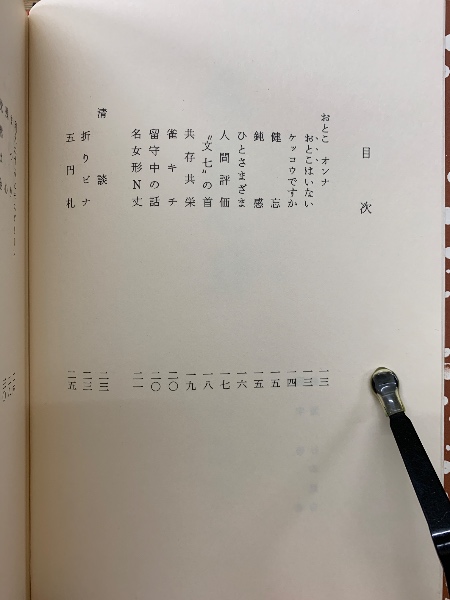 目次
おとこ オンナ 一三
おとこはいない 一三
ケッコウですか 一四
健忘 一五
鈍感 一五
ひとさまざま 一六
人間評価 一七
“文七”の首 一八
共存共栄 一九
雀キチ 二〇
留守中の話 二〇
名女形N丈 二一
清談 二三
折りビナ 二三
五円札 二五